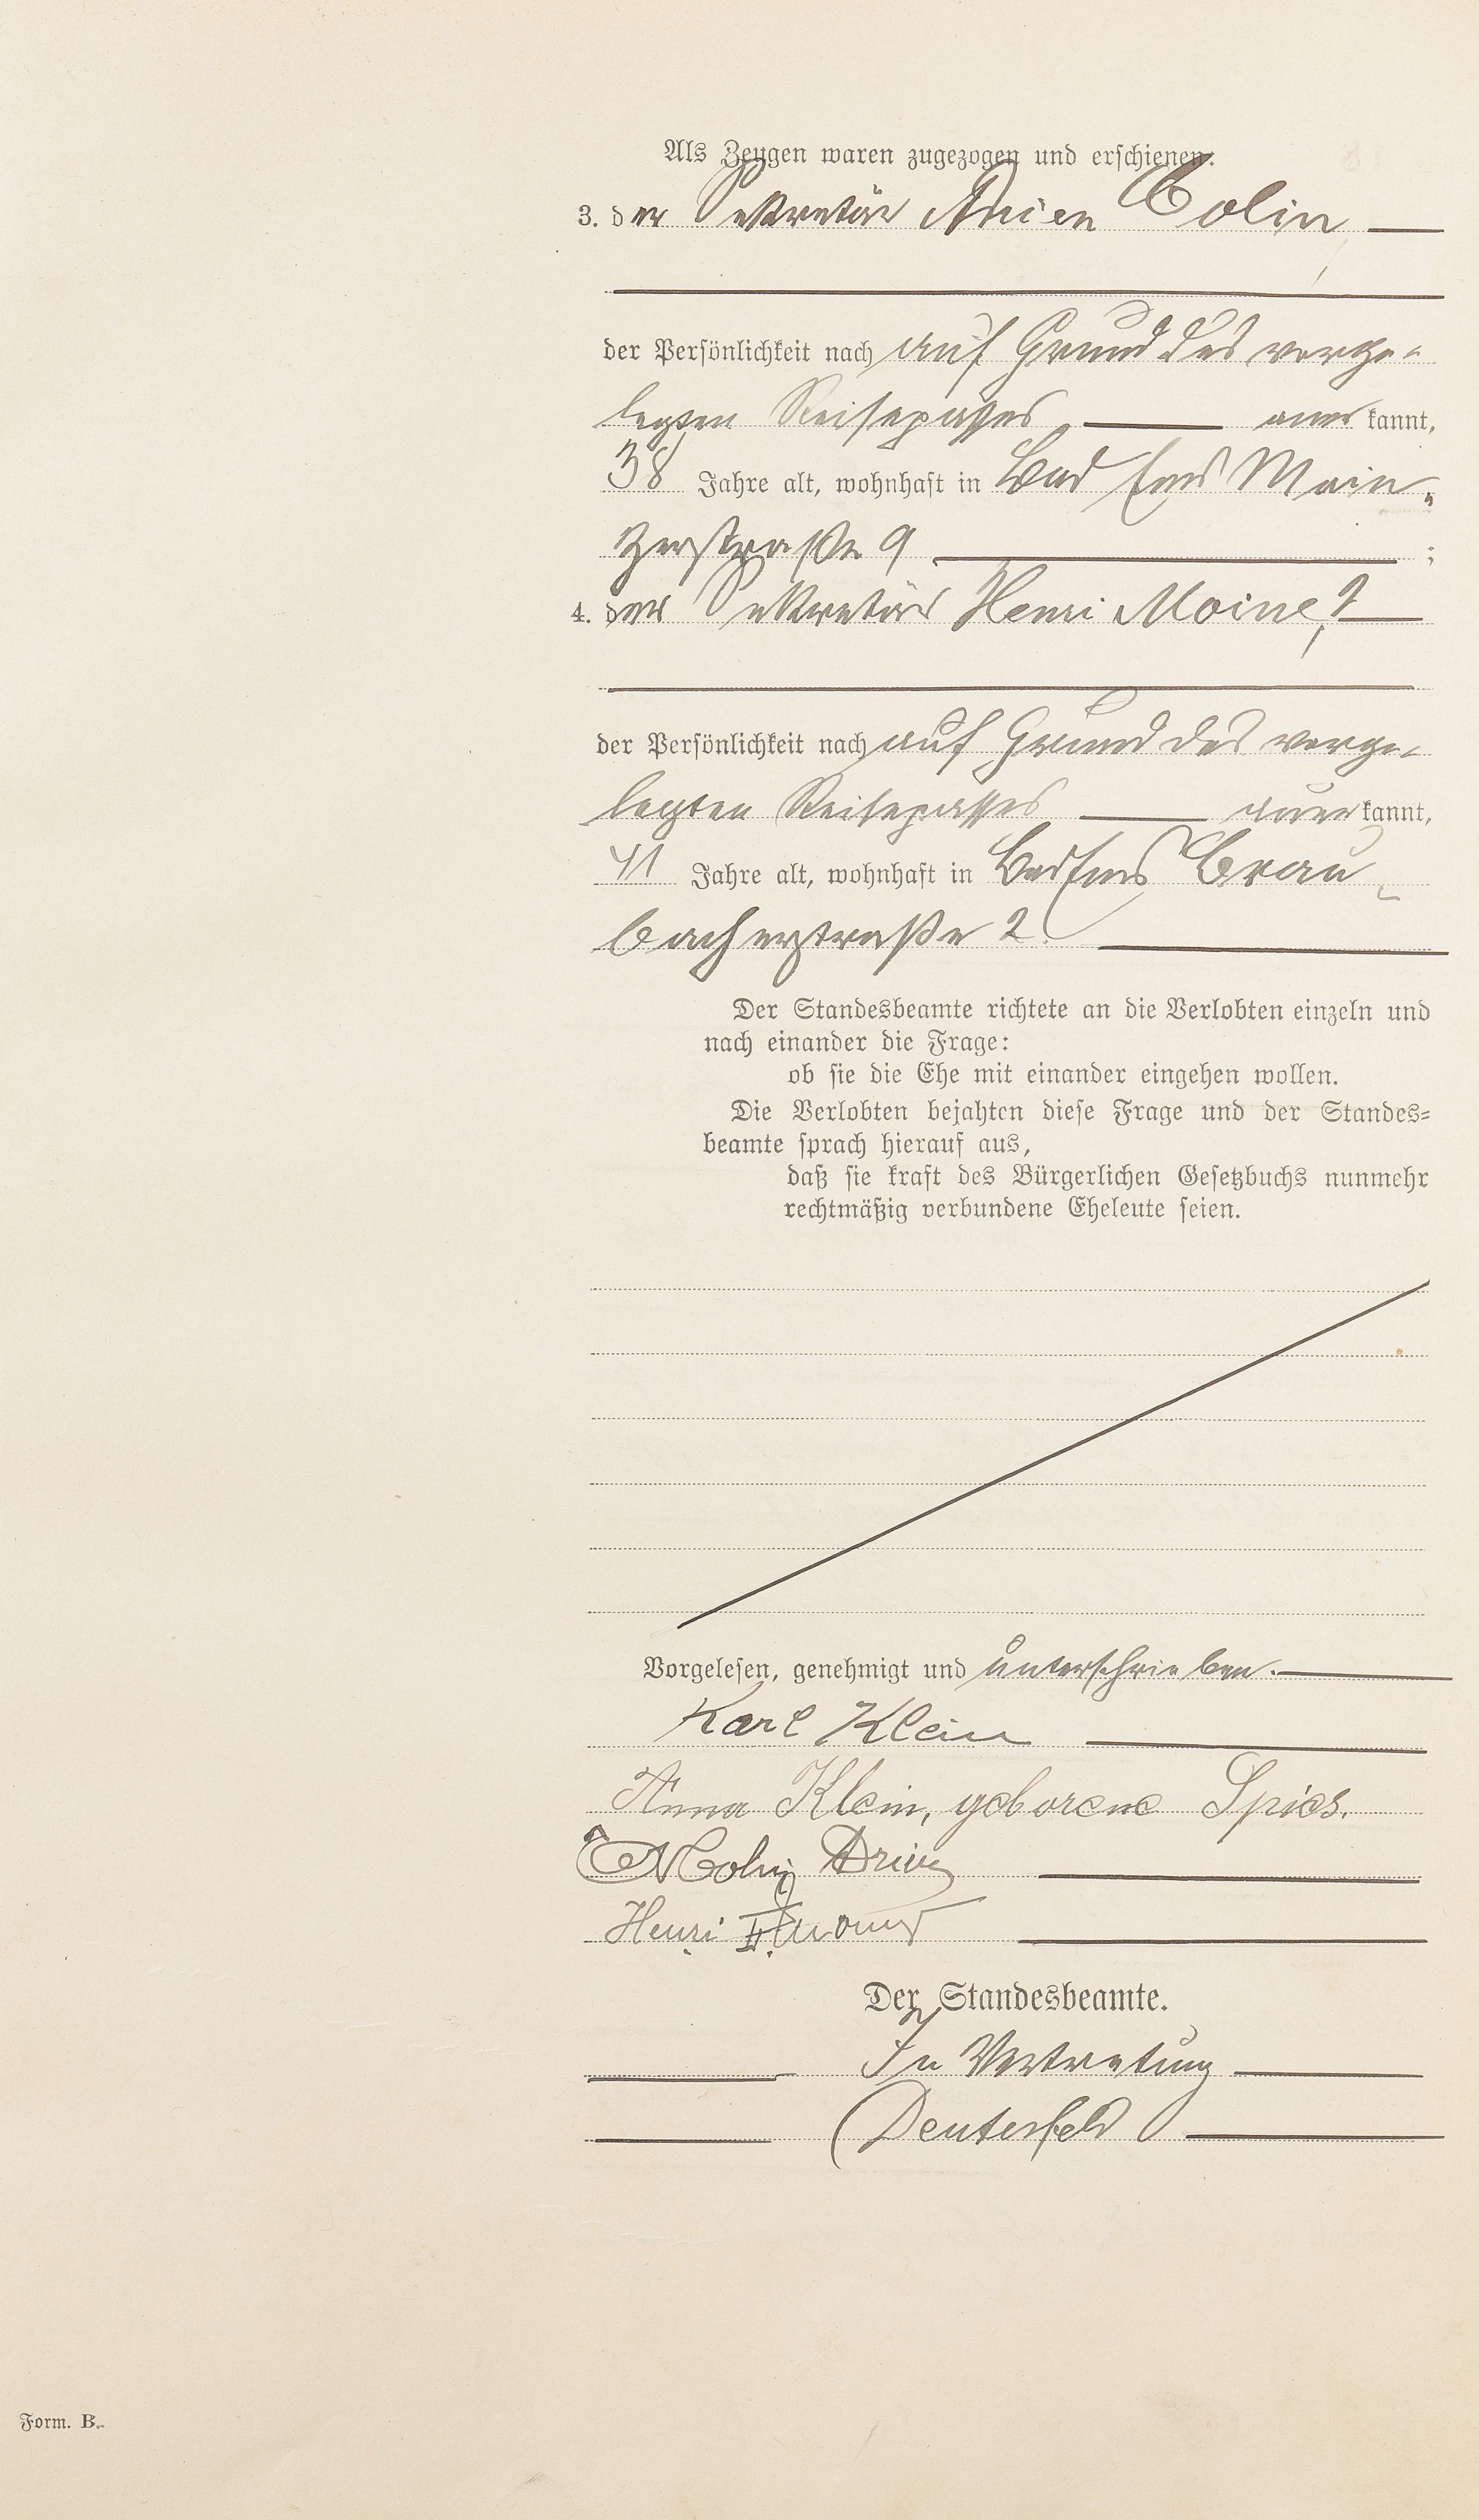 Als Zeugen waren zugezogen und erschienen:
3. der Sekretär Colin
der Persönlichkeit nach auf Grund des vorge-
legten Reisepasses aner kannt,
38 Jahre alt, wohnhaft in Bad Ems Main-
zerstraße 9 ;
4. der Sekretär Henri Moine,
der Persönlichkeit nach auf Grund des vorge-
legten Reisepasses aner kannt,
41 Jahre alt, wohnhaft in Bad Ems Brau-
bacherstraße 2
Der Standesbeamte richtete an die Verlobten einzeln und
nach einander die Frage:
ob sie die Ehe mit einander eingehen wollen.
Die Verlobten bejahten diese Frage und der Standes-
beamte sprach hierauf aus,
daß sie kraft des Bürgerlichen Gesetzbuchs nunmehr
rechtmäßig verbundene Eheleute seien.
Vorgelesen, genehmigt und unterschrieben.
Karl Klein
Anna Klein, geborene Spies.
Henri
Der Standesbeamte.
In Vertretung
Form. B.